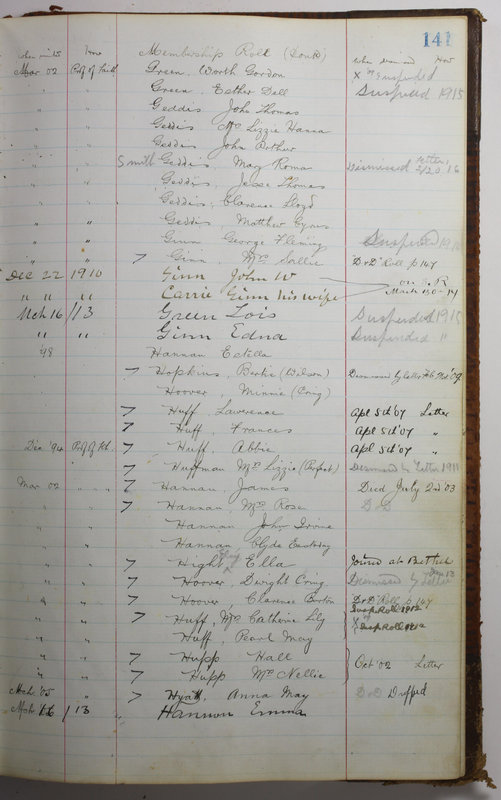 141
when rec'd How Membership Roll (Cont.) When dismissed How
Mar 02 Prof of Faith Green, Worth Gordon X Suspended
" " Green, Esther Dell Suspended 1915
" " Geddis John Thomas
" " Geddis Mrs Lizzie Hanna
" " Geddis John Arthur
" " Smith Geddis, May Roma Dismissed letter 2/20 '16
" " Geddis, Jesse Thomas
" " Geddis, Clarence Lloyd
" " Geddis, Matthew Cyrus
" " Gunn George Fleming Suspended
" " Ginn, Mrs Sallie D & D Roll p 147
Dec 22 1910 Ginn John W
" " " Carrie Ginn his wife March
Mch 16 /13 Green Lois Suspended 1915
" " Ginn Edna Suspended "
'98 Hannan Estella
Hopkins, Bertie (Wilson) Dismissed by letter '09
Hoover, Minnie (Craig)
Huff, Lawrence Apl 5th '07 Letter
Huff, Frances Apl 5th '07 "
Dec '94 Prof of Fth. Huff, Abbie Apl 5th '07 "
Huffman Mrs Lizzie Dismissed by Letter 1911
Mar 02 " " Hannan, James Died July 2nd '03
" " Hannan, Mrs Rose D & D
" " Hannan John Irvine
" " Hannan Clyde
" " Hight Ella Joined at Bethel
" " Hoover, Dwight Craig Dismissed by Letter
" " Hoover Clarence Burton D & D Roll p 147
" " Huff, Mrs Catherine Lily Susp Roll 1912
" " Huff, Pearl May X Susp Roll 1912
" " Hupp Hall Oct '02 Letter
" " Hupp Mrs Nellie
Mch '05 " Hyatt, Anna May D & D Dropped
Mch 16 /13 Hannon Emma